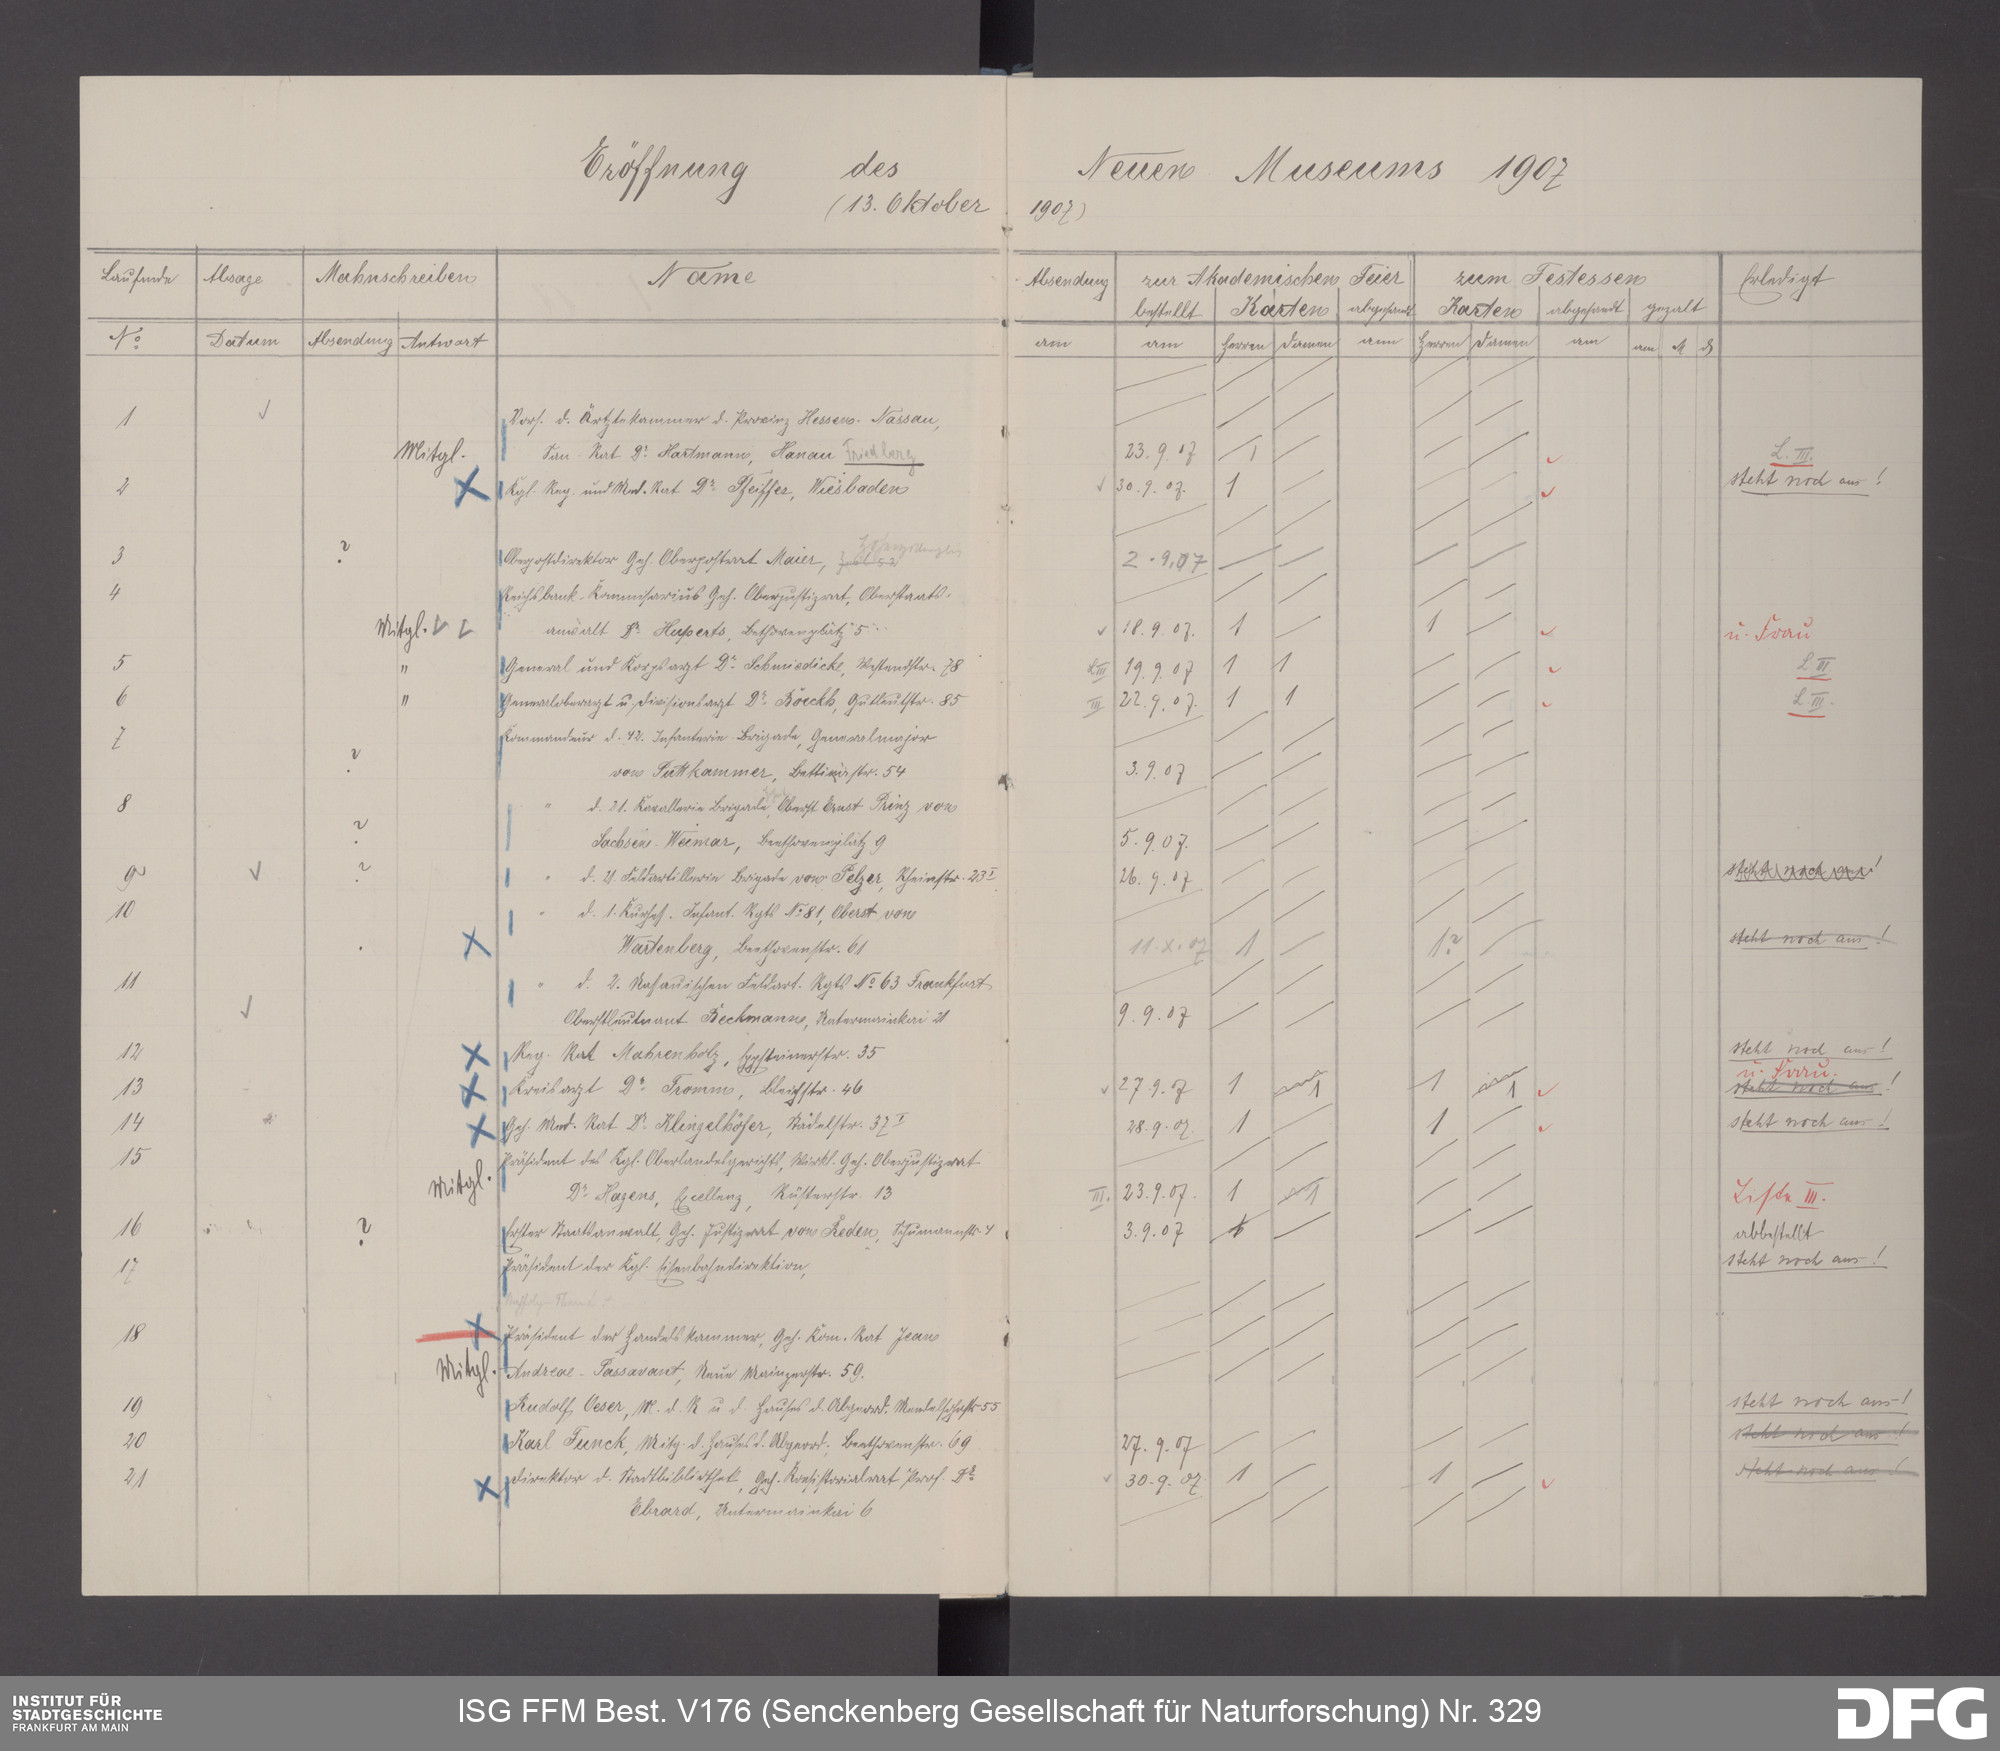 Eröffnung des Neuen Museums 1907
(13. Oktober 1907)
Laufende Absage Mahnschreiben Name Absendung zur Akademischen Feier zum Festessen Erledigt
bestellt Karten abgesandt Karten abgesandt gezalt
No Datum Absendung Antwort am am Herren Damen am Herren Damen am am M ₰
1 Vors. d. Ärztekammer d. Provinz Hessen-Nassau,
Mitgl. San-Rat Dr. Hartmann, Hanau Friedberg 23.9.07 1 L. III.
2 Kgl. Reg. und Med. Rat Dr. Pfeiffer, Wiesbaden 30.9.07. 1 steht noch aus!
3 ? Oberpostdirektor Geh. Oberpostrat Maier, 2.9.07
4 Reichsbank-Kommisarius Geh. Oberjustizrat, Oberstaats-
Mitgl. anwalt Dr. Huperts, Bethovenplatz 5 18.9.07. 1 1 u. Frau
5 " General und Korpsarzt Dr. Schmiedicke, Westendstr. 78 L III 19.9.07 1 1 L III
6 " Generaloberarzt u. Divisionsarzt Dr. Böckh, Gutleutstr. 85 III 22.9.07. 1 1 L. III.
7 Kommandeur d. 42. Infanterie-Brigade, Generalmajor
? von Puttkammer, Bettinastr. 54 3.9.07
8 " d. 21. Kavallerie Brigade, Oberst Ernst Prinz von
? Sachsen-Weimar, Beethovenplatz 9 5.9.07.
9 ? " d. 21 Feldartillerie Brigade von Pelzer, Rheinstr. 23 I 26.9.07 steht noch aus!
10 " d. 1. Kurhes. Infant. Rgts No 81, Oberst von
Wartenberg, Beethovenstr. 61 11.X.07 1 1? steht noch aus!
11 " d. 2. Nassauischen Feldart. Rgts No 63 Frankfurt
Oberstleutnant Beckmann, Untermainkai 21 9.9.07
12 Reg. Rat Mahrenholz, Eppsteinerstr. 35 steht noch aus!
u. Frau.
13 Kreisarzt Dr. Fromm, Bleichstr. 46 27.9.07 1 1 1 1 steht noch aus!
14 Geh. Med. Rat Dr. Klingelhöfer, Städelstr. 37 I 28.9.07. 1 1 steht noch aus!
15 Präsident des Kgl. Oberlandesgerichts, Wirkl. Geh. Oberjustizrat
Mitgl. Dr. Hagens, Excellenz, Rüsterstr. 13 III. 23.9.07. 1 1 Liste III.
16 ? Erster Staatsanwalt, Geh. Justizrat von Reden, Schumannstr. 4 3.9.07 abbestellt
17 Präsident der Kgl. Eisenbahndirektion, steht noch aus!
18 Präsident der Handelskammer, Geh. Kom. Rat Jean
Mitgl. Andreae-Passavant, Neue Mainzerstr. 59.
19 Rudolf Oeser, M. d. R. u. d. Hauses d. Abgeord. Mendelssohnstr. 55 steht noch aus!
20 Karl Funck, Mitg. d. Hauses d. Abgeord. Beethovenstr. 69 27.9.07 steht noch aus!
21 Direktor d. Stadtbibliothek, Geh. Konsistorialrat Prof. Dr. 30.9.07 1 1 steht noch aus!
Ebrard, Untermainkai 6
INSTITUT FÜR
STADTGESCHICHTE
FRANKFURT AM MAIN
ISG FFM Best. V176 (Senckenberg Gesellschaft für Naturforschung) Nr. 329
DFG